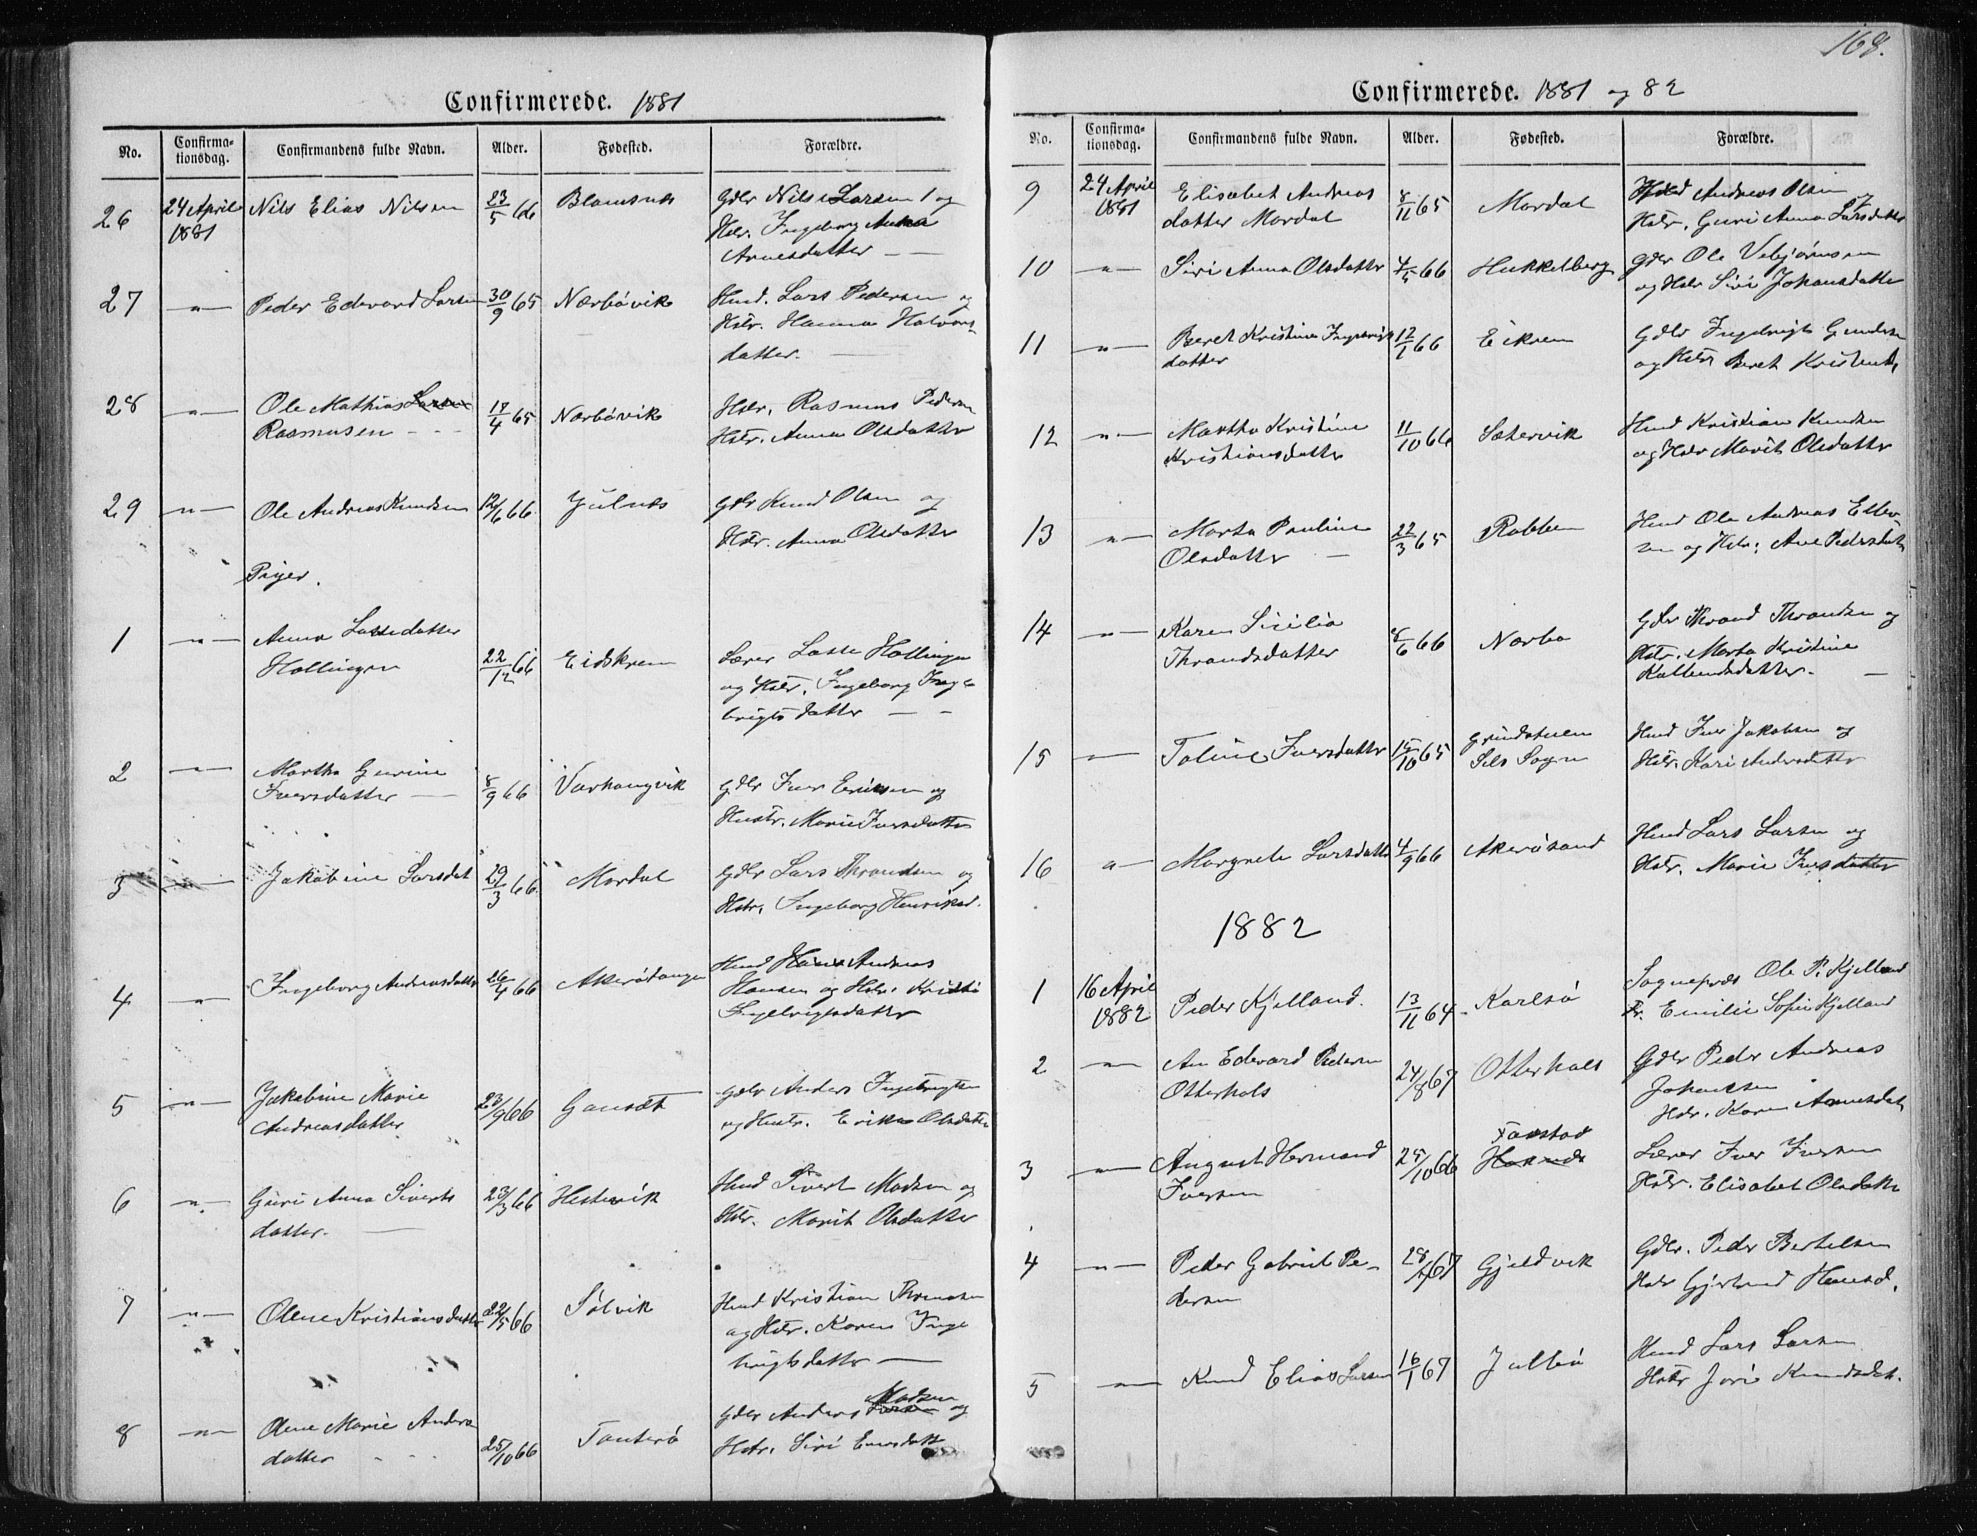 Confirmerede. 1881
No.
Confirma-
tionsdag.
Confirmandens fulde Navn.
Alder.
Fødested.
Forældre.
26
24 April
1881
Nils Elias Nilsen
23/5 66
Gdbr Nils Larsen og
Hstr. Ingeborg Anna
Arnesdatter
27
–"–
Peder Edevard Larsen
30/9 65
Nærbövik
Hmd. Lars Pedersen og
Hstr. Hanna Halvors-
datter.
28
–"–
Ole Mathias Larsen
Rasmusen
17/4 65
Nærbövik
Hstr. Rasmus Pedersen
Hstr. Anna Olsdatter
29
–"–
Ole Andreas Knudsen
12/6 66
Julnæs
Gdbr Knud Olsen og
Hstr. Anna Olsdatter
Piger.
1
–"–
Anna Lassedatter
Hollingen
22/12 66
Eidskrem
Lærer Lasse Hollingen
og Hstr. Ingeborg Inge-
brigtsdatter
2
–"–
Martha Gurine
Iversdatter
8/9 66
Varhaugvik
Gdbr Iver Eriksen og
Hustr. Marie Iversdatter
3
Jakobine Larsdat
29/3 66
Mordal
Gdbr Lars Thrandsen og
Hstr. Ingeborg Henriksd.
4
–"–
Ingeborg Andreasdatter
26/4 66
Akerötangen
Hmd Hans Andreas
Hansen og Hstr.
Ingebrigtsdatter
5
–"–
Jakobine Marie
Andreasdatter
23/9 66
Gausæt
Gdbr Anders Ingebrigtsen
og Hustr. Erika Olsdatter
6
–"–
Guri Anna Siverts
datter.
23/3 66
Hestevik
Hmd Sivert Madsen og
Hstr. Marit Olsdatter
7
–"–
Olene Kristiansdatter
22/5 66
Sölvik
Hmd Kristian Thomasen
og Hstr. Karen Inge
brigtsdatter
8
–"–
Olene Marie Anders
datter
25/10 66
Tauterö
Madsen
Gdbr Anders Larsen og
Hstr. Siri
168.
Confirmerede. 1881 og 82
No.
Confirma-
tionsdag.
Confirmandens fulde Navn.
Alder.
Fødested.
Forældre.
9
24 April
1881
Elisabet Andreas
datter Mordal
8/11 65
Mordal
Andreas Olsen
Hstr. Guri Anna Larsdatter
10
–"–
Siri Anna Olsdatter
4/5 66
Hukkelberg
Gdbr Ole Vebjörnsen
og Hstr Siri Johansdatter
11
–"–
Beret Kristine Ingebrigts
datter
12/1 66
Eikrem
Gdbr Ingebrigt
og Hstr Beret
12
–"–
Martha Kristine
Kristiansdatter
11/10 66
Sætervik
Hmd Kristian Knudsen
og Hstr Marit Olsdatter
13
–"–
Marta Pauline
Olsdatter
22/3 65
Rabben
Hmd Ole Andreas Ellev-
sen og Hstr. Ane Pedersdat
14
–"–
Karen Sicilia
Thrandsdatter
8/6 66
Nærbø
Gdbr Thrand Thrandsen og
Hstr. Marta Kristine
15
–"–
Toline Iversdatter
15/10 65
Grindstuen
Sels Sogn
Hmd Iver Jakobsen og
Hstr. Kari Andersdatter
16
"
Margrete Larsdatter
4/9 66
Akerösund
Hmd Lars Larsen og
Hstr. Marie Iversdatter
1882
1
16 April
1882
Peder Kjelland.
13/11 64
Karlsö
Sognepræst Ole P. Kjelland
Fr. Emilie Sofie Kjelland
2
–"–
An Edevard Pedersen
Otterhals
24/8 67
Otterhals
Gdbr Peder Andreas
Johansen
Hstr. Karen Arnesdat
3
–"–
August Hermand
Iversen
25/10 66
Farstad
Lærer Iver Iversen
Hstr. Elisabet Olsdatter
4
–"–
Peder Gabriel Pe-
dersen
Gjeldvik
Gdbr. Peder Bertelsen
Hstr Gjertrud Hansd.
5
–"–
Knud Elias Larsen
16/1 67
Julbö
Hmd Lars Larsen
Hstr Jöri Knudsdat.